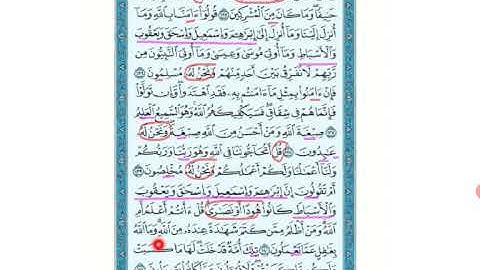 حَنِيفًا وَمَا كَانَ مِنَ ٱلْمُشْرِكِينَ ١٣٥ قُولُوٓا۟ ءَامَنَّا بِٱللَّهِ وَمَآ
أُنزِلَ إِلَيْنَا وَمَآ أُنزِلَ إِلَىٰٓ إِبْرَٰهِـۧمَ وَإِسْمَٰعِيلَ وَإِسْحَٰقَ وَيَعْقُوبَ
وَٱلْأَسْبَاطِ وَمَآ أُوتِىَ مُوسَىٰ وَعِيسَىٰ وَمَآ أُوتِىَ ٱلنَّبِيُّونَ مِن
رَّبِّهِمْ لَا نُفَرِّقُ بَيْنَ أَحَدٍ مِّنْهُمْ وَنَحْنُ لَهُۥ مُسْلِمُونَ ١٣٦
فَإِنْ ءَامَنُوا۟ بِمِثْلِ مَآ ءَامَنتُم بِهِۦ فَقَدِ ٱهْتَدَوا۟ وَّإِن تَوَلَّوْا۟
فَإِنَّمَا هُمْ فِى شِقَاقٍ فَسَيَكْفِيكَهُمُ ٱللَّهُ وَهُوَ ٱلسَّمِيعُ ٱلْعَلِيمُ
١٣٧ صِبْغَةَ ٱللَّهِ وَمَنْ أَحْسَنُ مِنَ ٱللَّهِ صِبْغَةً وَنَحْنُ لَهُۥ
عَٰبِدُونَ ١٣٨ قُلْ أَتُحَآجُّونَنَا فِى ٱللَّهِ وَهُوَ رَبُّنَا وَرَبُّكُمْ
وَلَنَآ أَعْمَٰلُنَا وَلَكُمْ أَعْمَٰلُكُمْ وَنَحْنُ لَهُۥ مُخْلِصُونَ ١٣٩
أَمْ تَقُولُونَ إِنَّ إِبْرَٰهِـۧمَ وَإِسْمَٰعِيلَ وَإِسْحَٰقَ وَيَعْقُوبَ
وَٱلْأَسْبَاطَ كَانُوا۟ هُودًا أَوْ نَصَٰرَىٰ قُلْ ءَأَنتُمْ أَعْلَمُ أَمِ
ٱللَّهُ وَمَنْ أَظْلَمُ مِمَّن كَتَمَ شَهَٰدَةً عِندَهُۥ مِنَ ٱللَّهِ وَمَا ٱللَّهُ
بِغَٰفِلٍ عَمَّا تَعْمَلُونَ ١٤٠ تِلْكَ أُمَّةٌ قَدْ خَلَتْ لَهَا مَا كَسَبَتْ